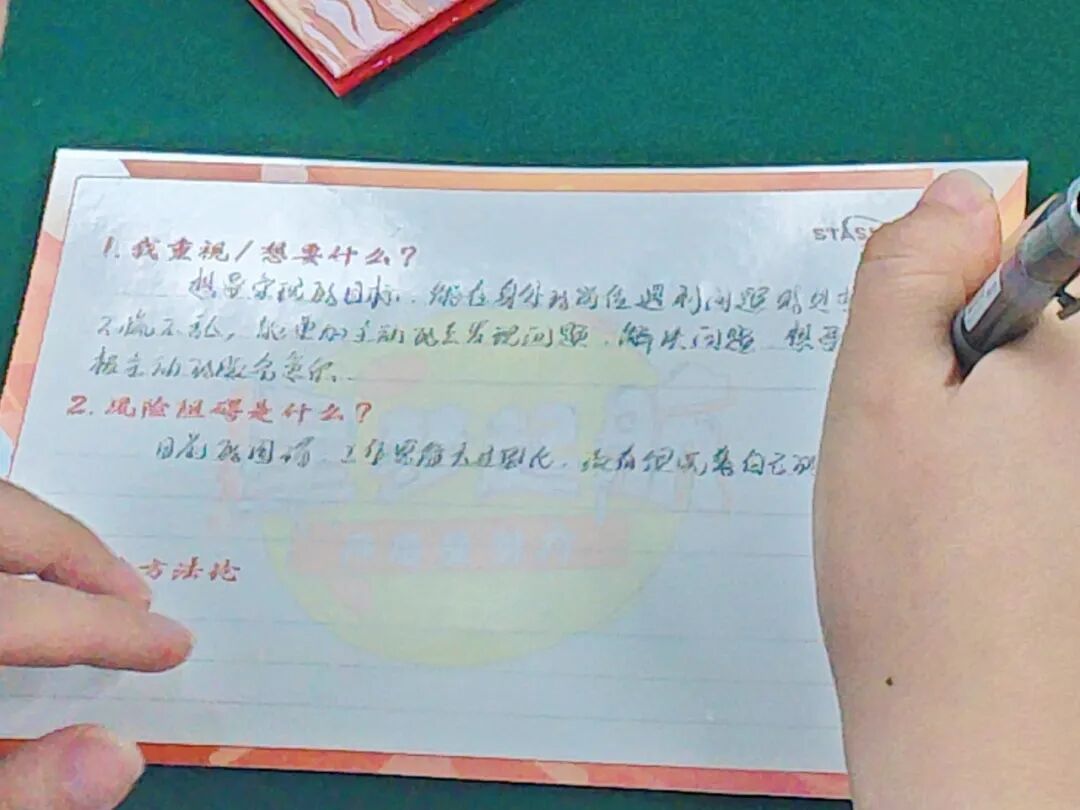 1. 我重视/想要什么?
想要实现的目标,能在自身的岗位遇到问题时处
不慌不乱,能更加主动的去发现问题、解决问题 想要
极主动的
2. 风险阻碍是什么?
目前的困扰,工作思维太过固化,没有很完善自己的
方法论